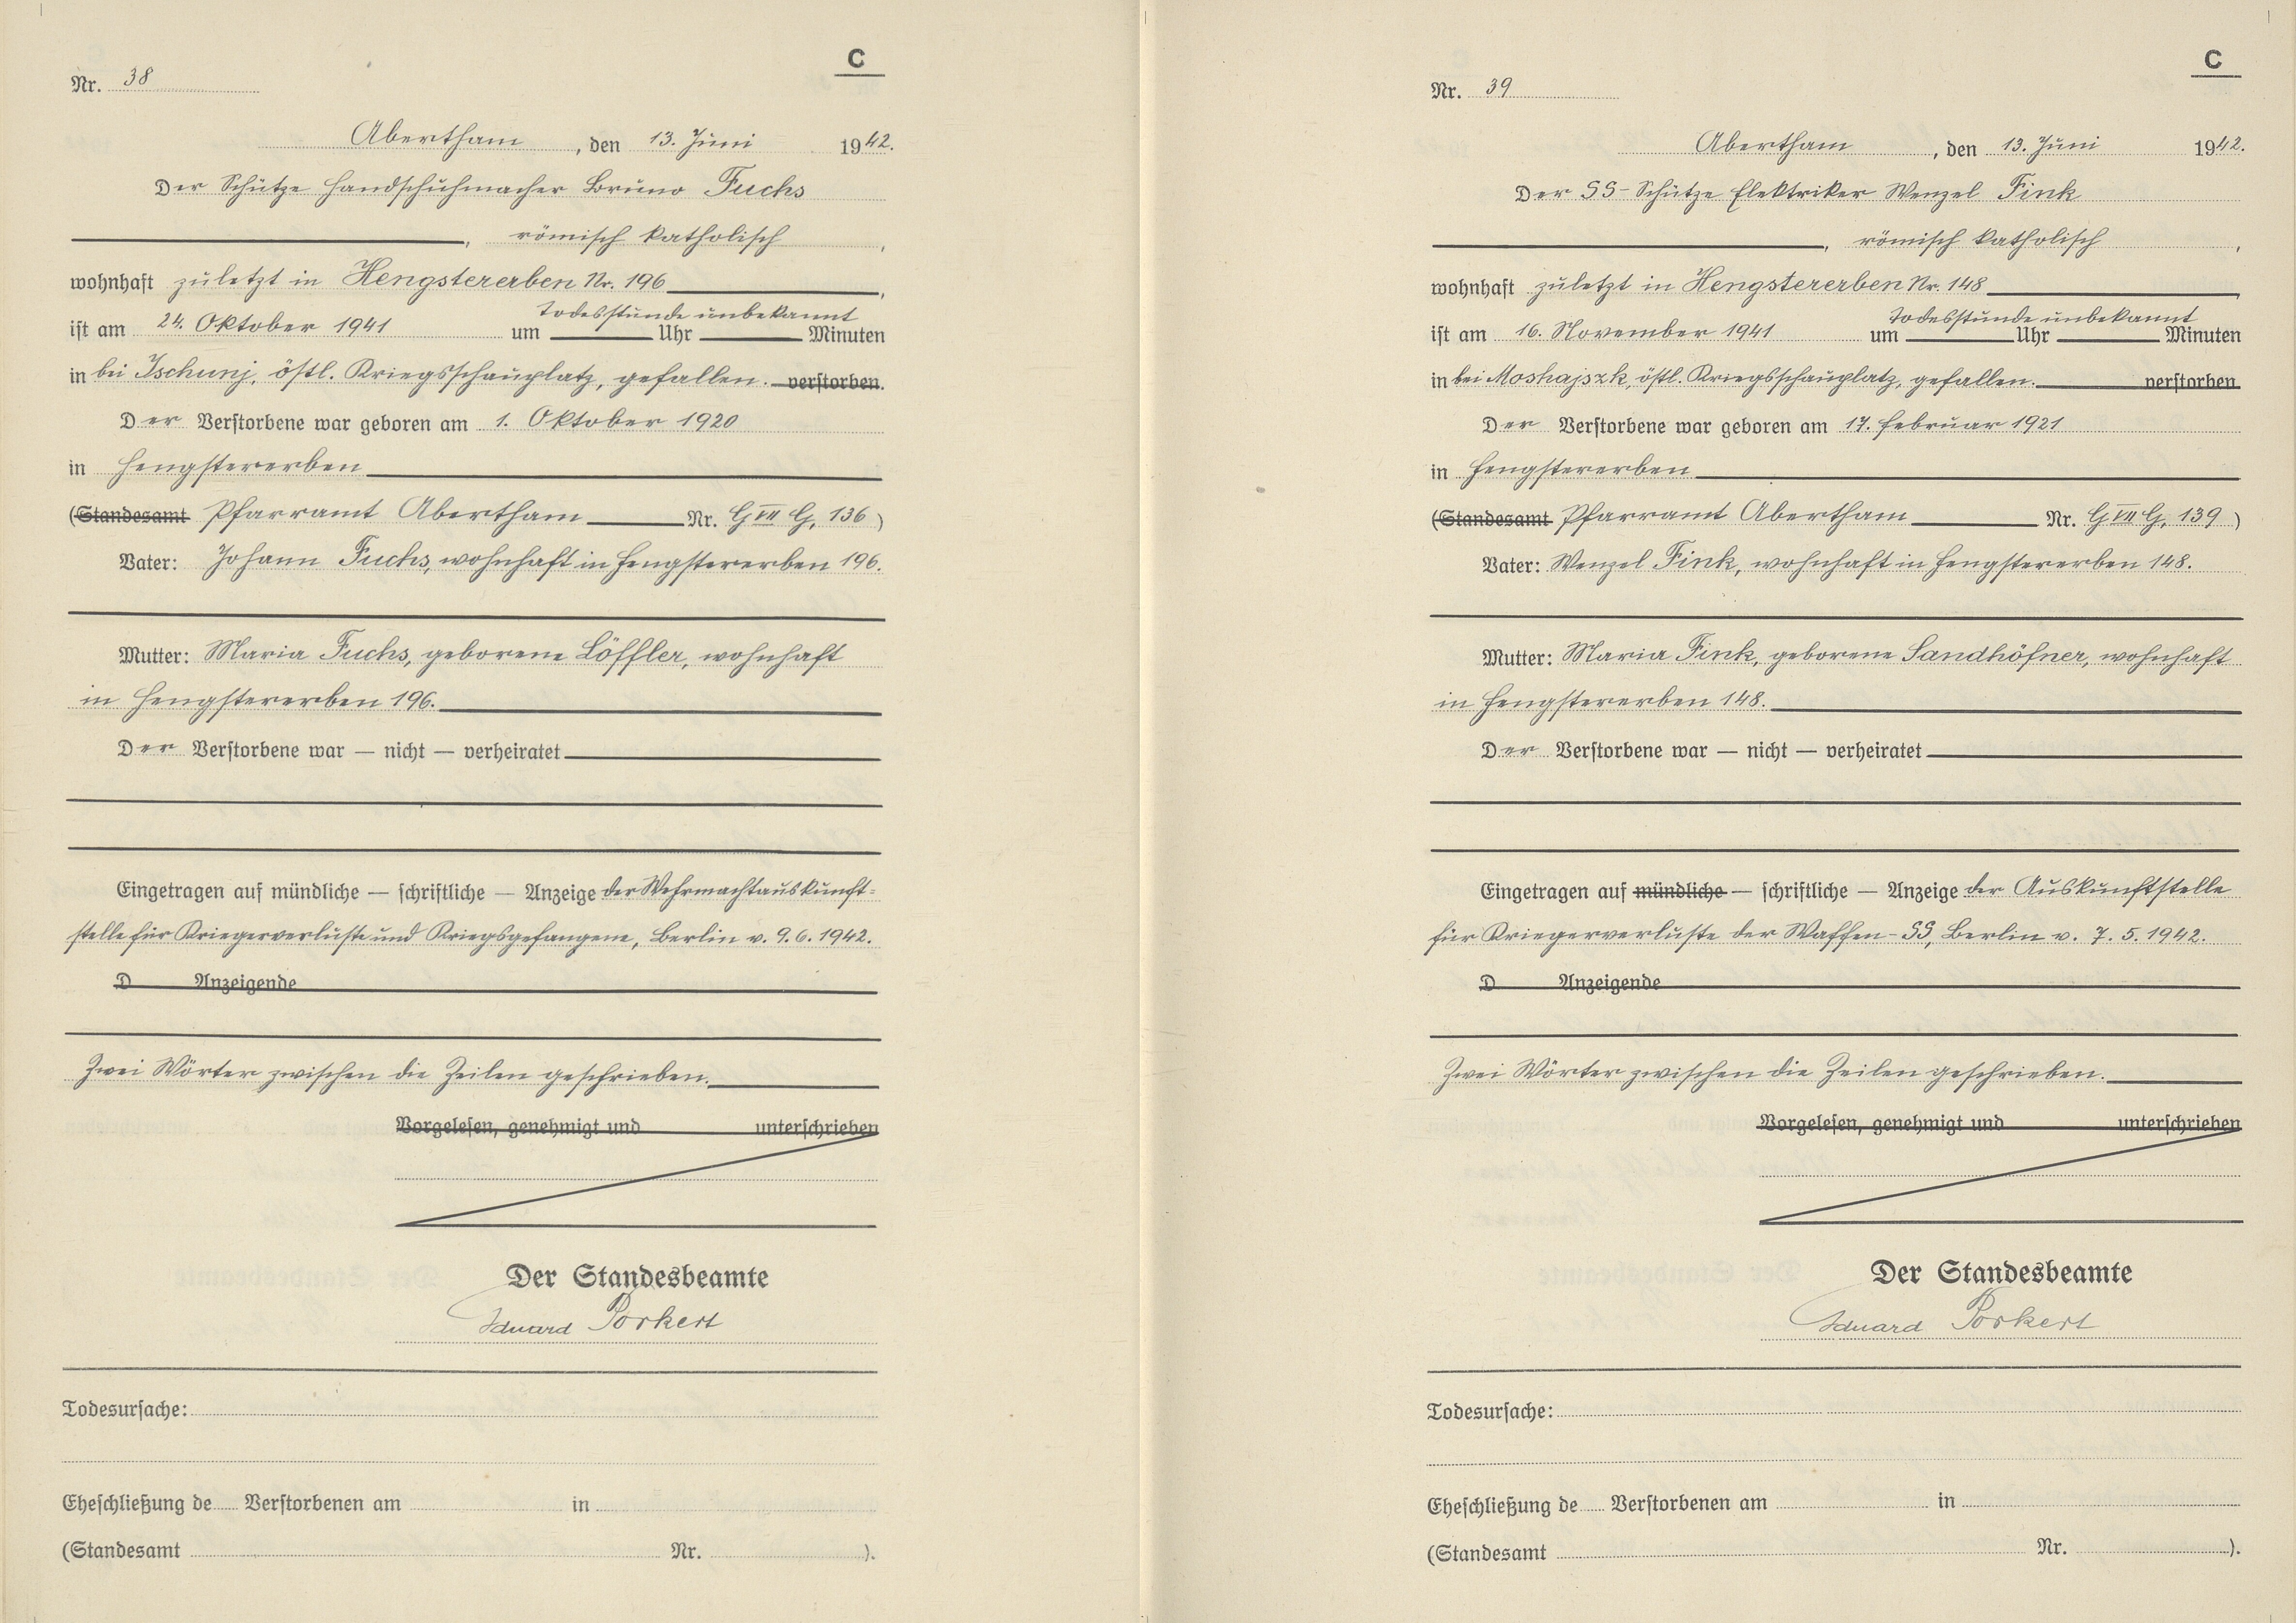 C
Nr. 38
Abertham, den 13. Juni 1942.
Der Schütze Handschuhmacher Bruno Fuchs
, römisch katholisch ,
wohnhaft zuletzt in Hengstererben Nr. 196 ,
Todesstunde unbekannt
ist am 24. Oktober 1941 um Uhr Minuten
in bei Ischunj, östl. Kriegsschauplatz, gefallen. verstorben.
Der Verstorbene war geboren am 1. Oktober 1920
in Hengstererben
(Standesamt Pfarramt Abertham Nr. G VII G, 136)
Vater: Johann Fuchs, wohnhaft in Hengstererben 196.
Mutter: Maria Fuchs, geborene Löffler, wohnhaft
in Hengstererben 196.
Der Verstorbene war — nicht — verheiratet
Eingetragen auf mündliche — schriftliche — Anzeige der Wehrmachtauskunft-
stelle für Kriegerverluste und Kriegsgefangene, Berlin v. 9.6.1942.
D Anzeigende
Zwei Wörter zwischen die Zeilen geschrieben.
Vorgelesen, genehmigt und unterschrieben
Der Standesbeamte
Eduard Porkert
Todesursache:
Eheschließung de Verstorbenen am in
(Standesamt Nr. ).
C
Nr. 39
Abertham, den 13. Juni 1942.
Der SS-Schütze Elektriker Wenzel Fink
, römisch katholisch ,
wohnhaft zuletzt in Hengstererben Nr. 148 ,
Todesstunde unbekannt
ist am 16. November 1941 um Uhr Minuten
in bei Moshajszk, östl. Kriegsschauplatz, gefallen. verstorben
Der Verstorbene war geboren am 17. Februar 1921
in Hengstererben
(Standesamt Pfarramt Abertham Nr. G VII G, 139)
Vater: Wenzel Fink, wohnhaft in Hengstererben 148.
Mutter: Maria Fink, geborene Sandhöfner, wohnhaft
in Hengstererben 148.
Der Verstorbene war — nicht — verheiratet
Eingetragen auf mündliche — schriftliche — Anzeige der Auskunftstelle
für Kriegerverluste der Waffen-SS, Berlin v. 7.5.1942.
D Anzeigende
Zwei Wörter zwischen die Zeilen geschrieben.
Vorgelesen, genehmigt und unterschrieben
Der Standesbeamte
Eduard Porkert
Todesursache:
Eheschließung de Verstorbenen am in
(Standesamt Nr. ).